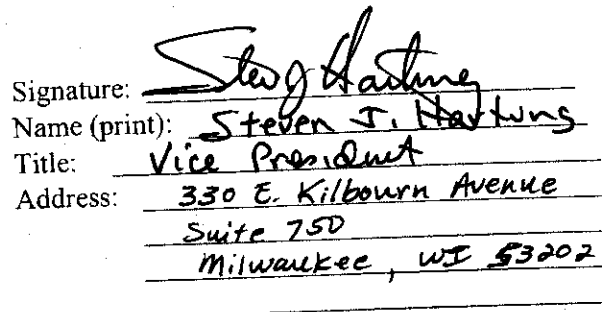 Signature: Steve J Hartung
Name (print): Steven J. Hartung
Title: Vice President
Address: 330 E. Kilbourn Avenue
Suite 750
Milwaukee, WI 53202